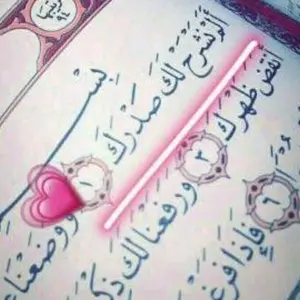 بِسْـ
أَلَمْ نَشْرَحْ لَكَ صَدْرَكَ ١ وَوَضَعْنَا
أَنقَضَ ظَهْرَكَ ٣ وَرَفَعْنَا لَكَ ذِكْـ
٦ فَإِذَا فَرَغْـ